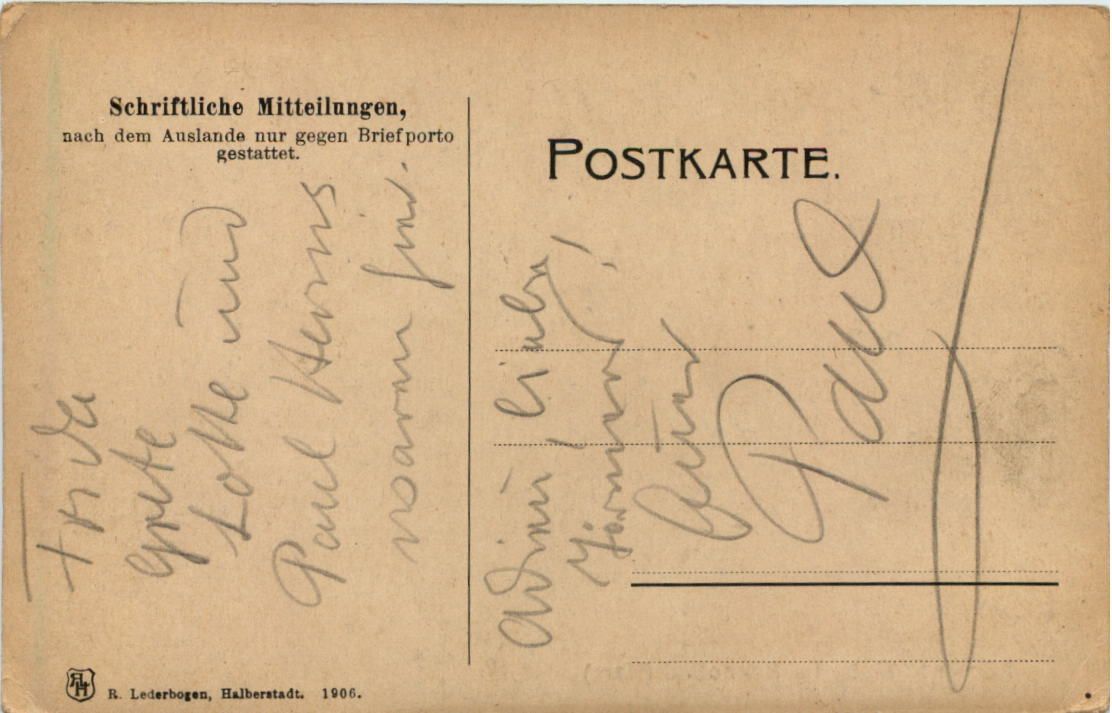 Schriftliche Mitteilungen,
nach dem Auslande nur gegen Briefporto
gestattet.
POSTKARTE.
Frida
Grete
Lotte und
Paul Herms
waren hier.
Adieu liebe
Euer
Paul
R. Lederbogen, Halberstadt. 1906.